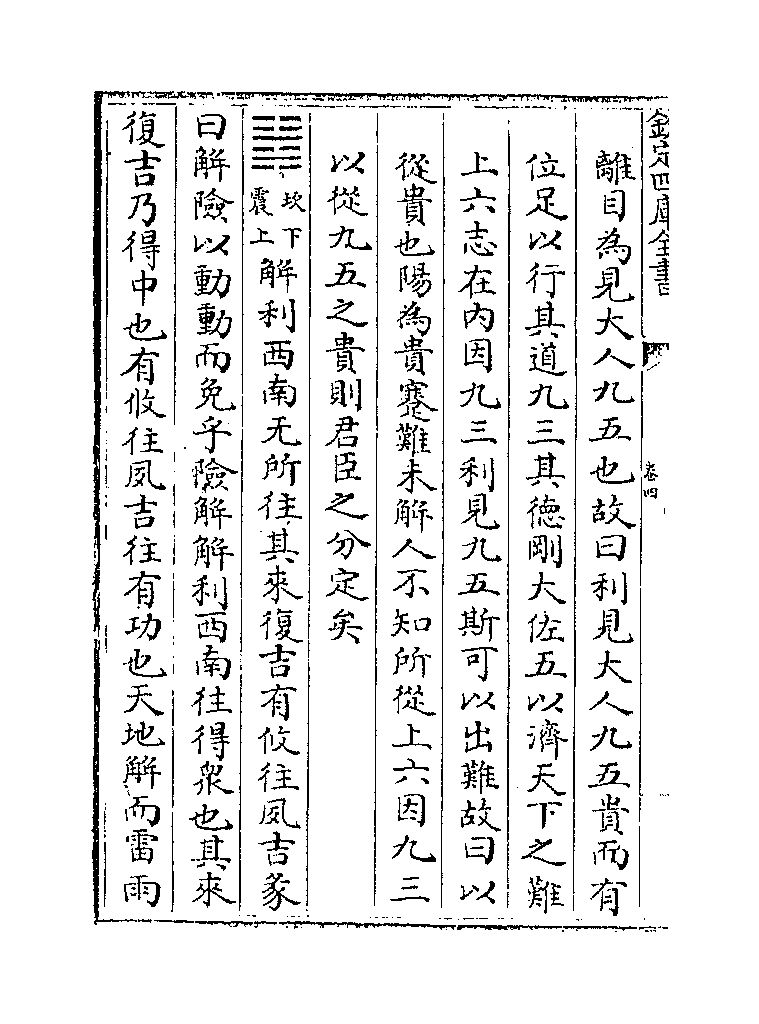 欽定四庫全書
卷四
離目為見大人九五也故曰利見大人九五貴而有
位足以行其道九三其德剛大佐五以濟天下之難
上六志在内因九三利見九五斯可以出難故曰以
從貴也陽為貴蹇難未解人不知所從上六因九三
以從九五之貴則君臣之分定矣
䷧坎下震上解利西南无所往其來復吉有攸往夙吉彖
曰解險以動動而免乎險解解利西南往得衆也其來
復吉乃得中也有攸往夙吉往有功也天地解而雷雨